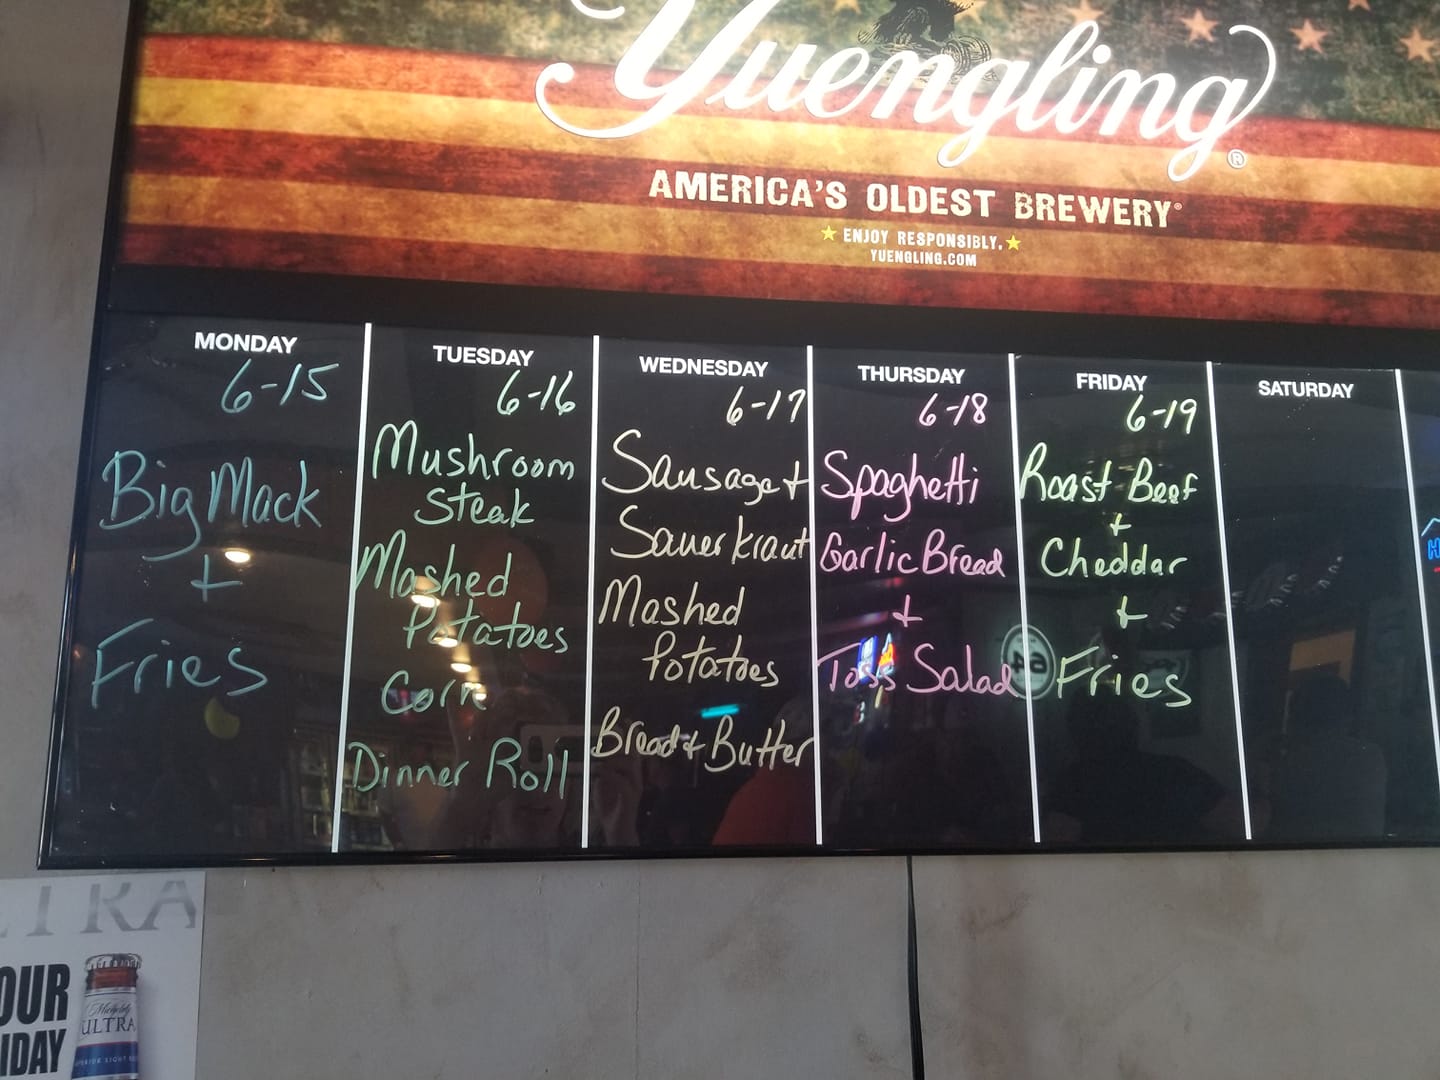 Yuengling®
AMERICA'S OLDEST BREWERY®
ENJOY RESPONSIBLY.
YUENGLING.COM
MONDAY
6-15
Big Mack
+
Fries
TUESDAY
6-16
Mushroom
Steak
Mashed
Potatoes
Corn
Dinner Roll
WEDNESDAY
6-17
Sausage +
Sauerkraut
Mashed
Potatoes
Bread + Butter
THURSDAY
6-18
Spaghetti
Garlic Bread
+
Toss Salad
FRIDAY
6-19
Roast Beef
+
Cheddar
+
Fries
SATURDAY
TRA
OUR
IDAY
Michelob
ULTRA
SUPERIOR LIGHT